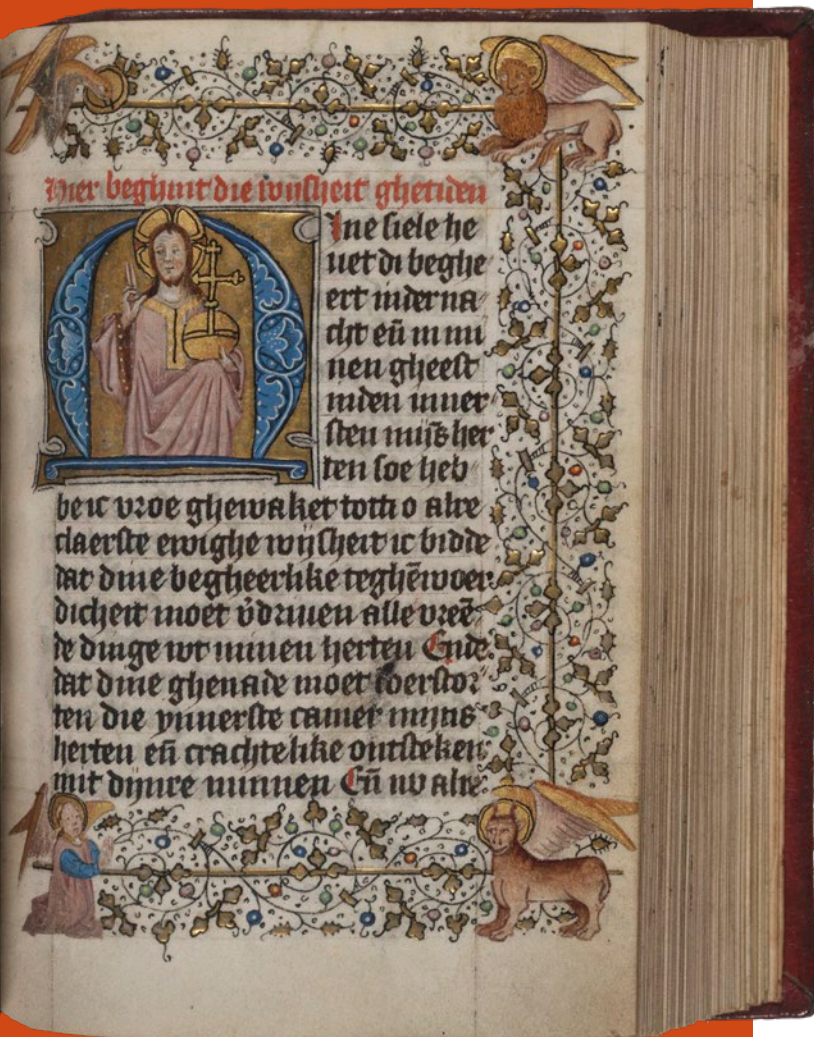 Hier beghint die wijsheit ghetiden
Mine siele he
uet di beghe
ert in der na
cht eñ in mi
nen gheest
in den inner
sten mijs her
ten soe heb
be ic vroe ghewaket tot ti o alre
claerste ewighe wijsheit ic bidde
dat dine begheerlike teghēwoer
dicheit moet v̄driuen alle vreē
de dinge wt minen herten Ende
dat dine ghenade moet doerstor
ten die ynnerste camer mijns
herten eñ crachtelike ontsteken
mit dijnre minnen Eñ nv alre